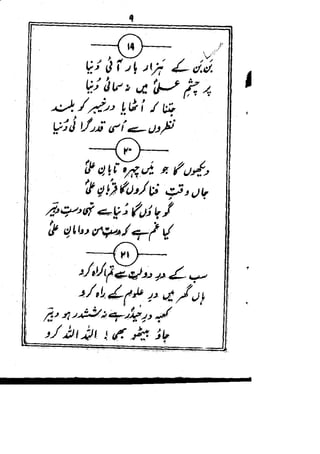 ۹
۱۹
بن بن کے ہزار بار آئی دنیا
پر چشمِ علیؑ میں نہ سمائی دنیا
جتنا کہ اٹھایا درِ خیبر کو بلند
نظروں سے اسی قدر گرائی دنیا
۲۰
دیکھوں گا جو میں چہرہ تابانِ علیؑ
جاں وقت فنا کروں گا قربانِ علیؑ
گو جاؤں گا دنیا سے تہی دست دبیر
کیا غم ہے کہ دست و دامانِ علیؑ
۲۱
سب کے در دولت سے تم اکراہ کرو
ہاں گھر میں درِ علوم کے راہ کرو
کعبہ درِ حیدر ہے نہ ششدر ہو دبیر
جاؤ بیٹھو بھی! اللہ اللہ کرو